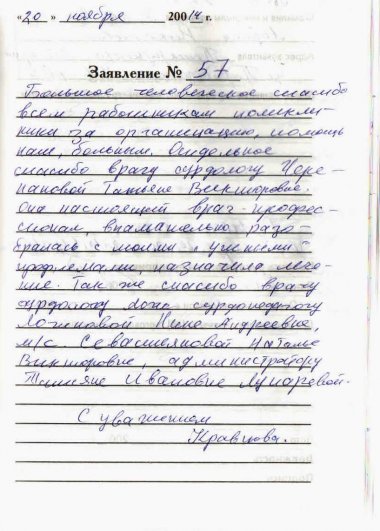 «20» ноября 20014 г.
Заявление № 57
Большое человеческое спасибо
всем работникам поликли-
ники за организацию, помощь
нам, больным. Отдельное
спасибо врачу сурдологу
Татьяне Викторовне.
Она настоящий врач профес-
сионал, внимательно разо-
бралась с моими
проблемами, назначила лече-
ние. Так же спасибо врачу
сурдологу сурдопедагогу
Логиновой Нине Андреевне,
м/с Севастьяновой Наталье
Викторовне, администратору
Ивановне
С уважением
Кравцова.